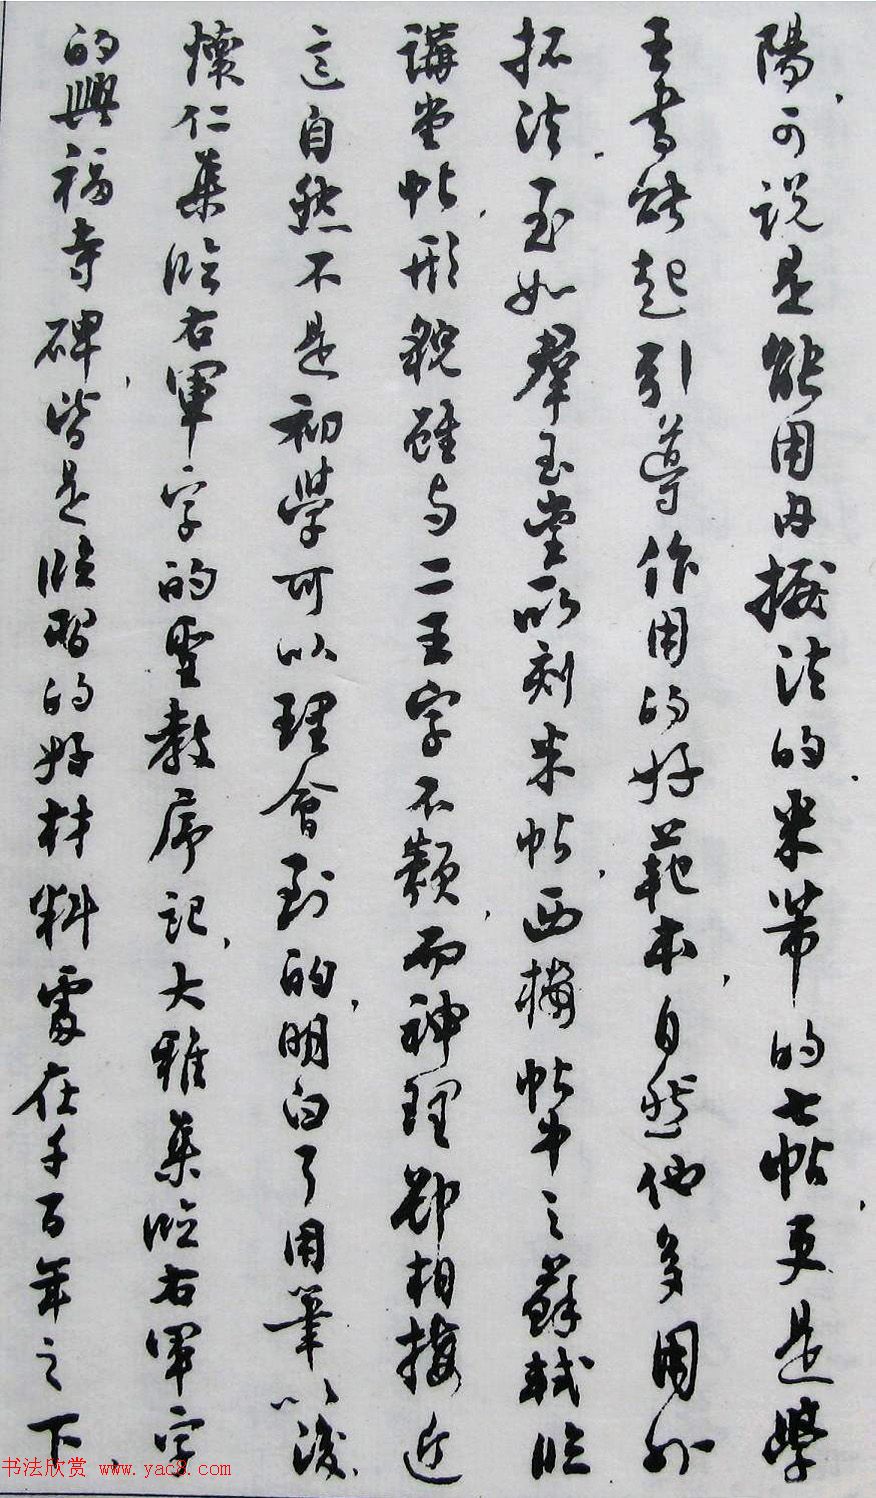 陽,可説是能用内擫法的,米芾的七帖,更是學
王書能起引導作用的好範本,自然他多用外
拓法,至如羣玉堂所刻米帖,西樓帖中之蘇軾臨
講堂帖,形貌雖与二王字不類,而神理卻相接近
這自然不是初學可以理會到的,明白了用筆以後,
懷仁集臨右軍字的聖教序記,大雅集臨右軍字
的興福寺碑,皆是臨習的好材料處在千百年之下,
书法欣赏 www.yac8.com